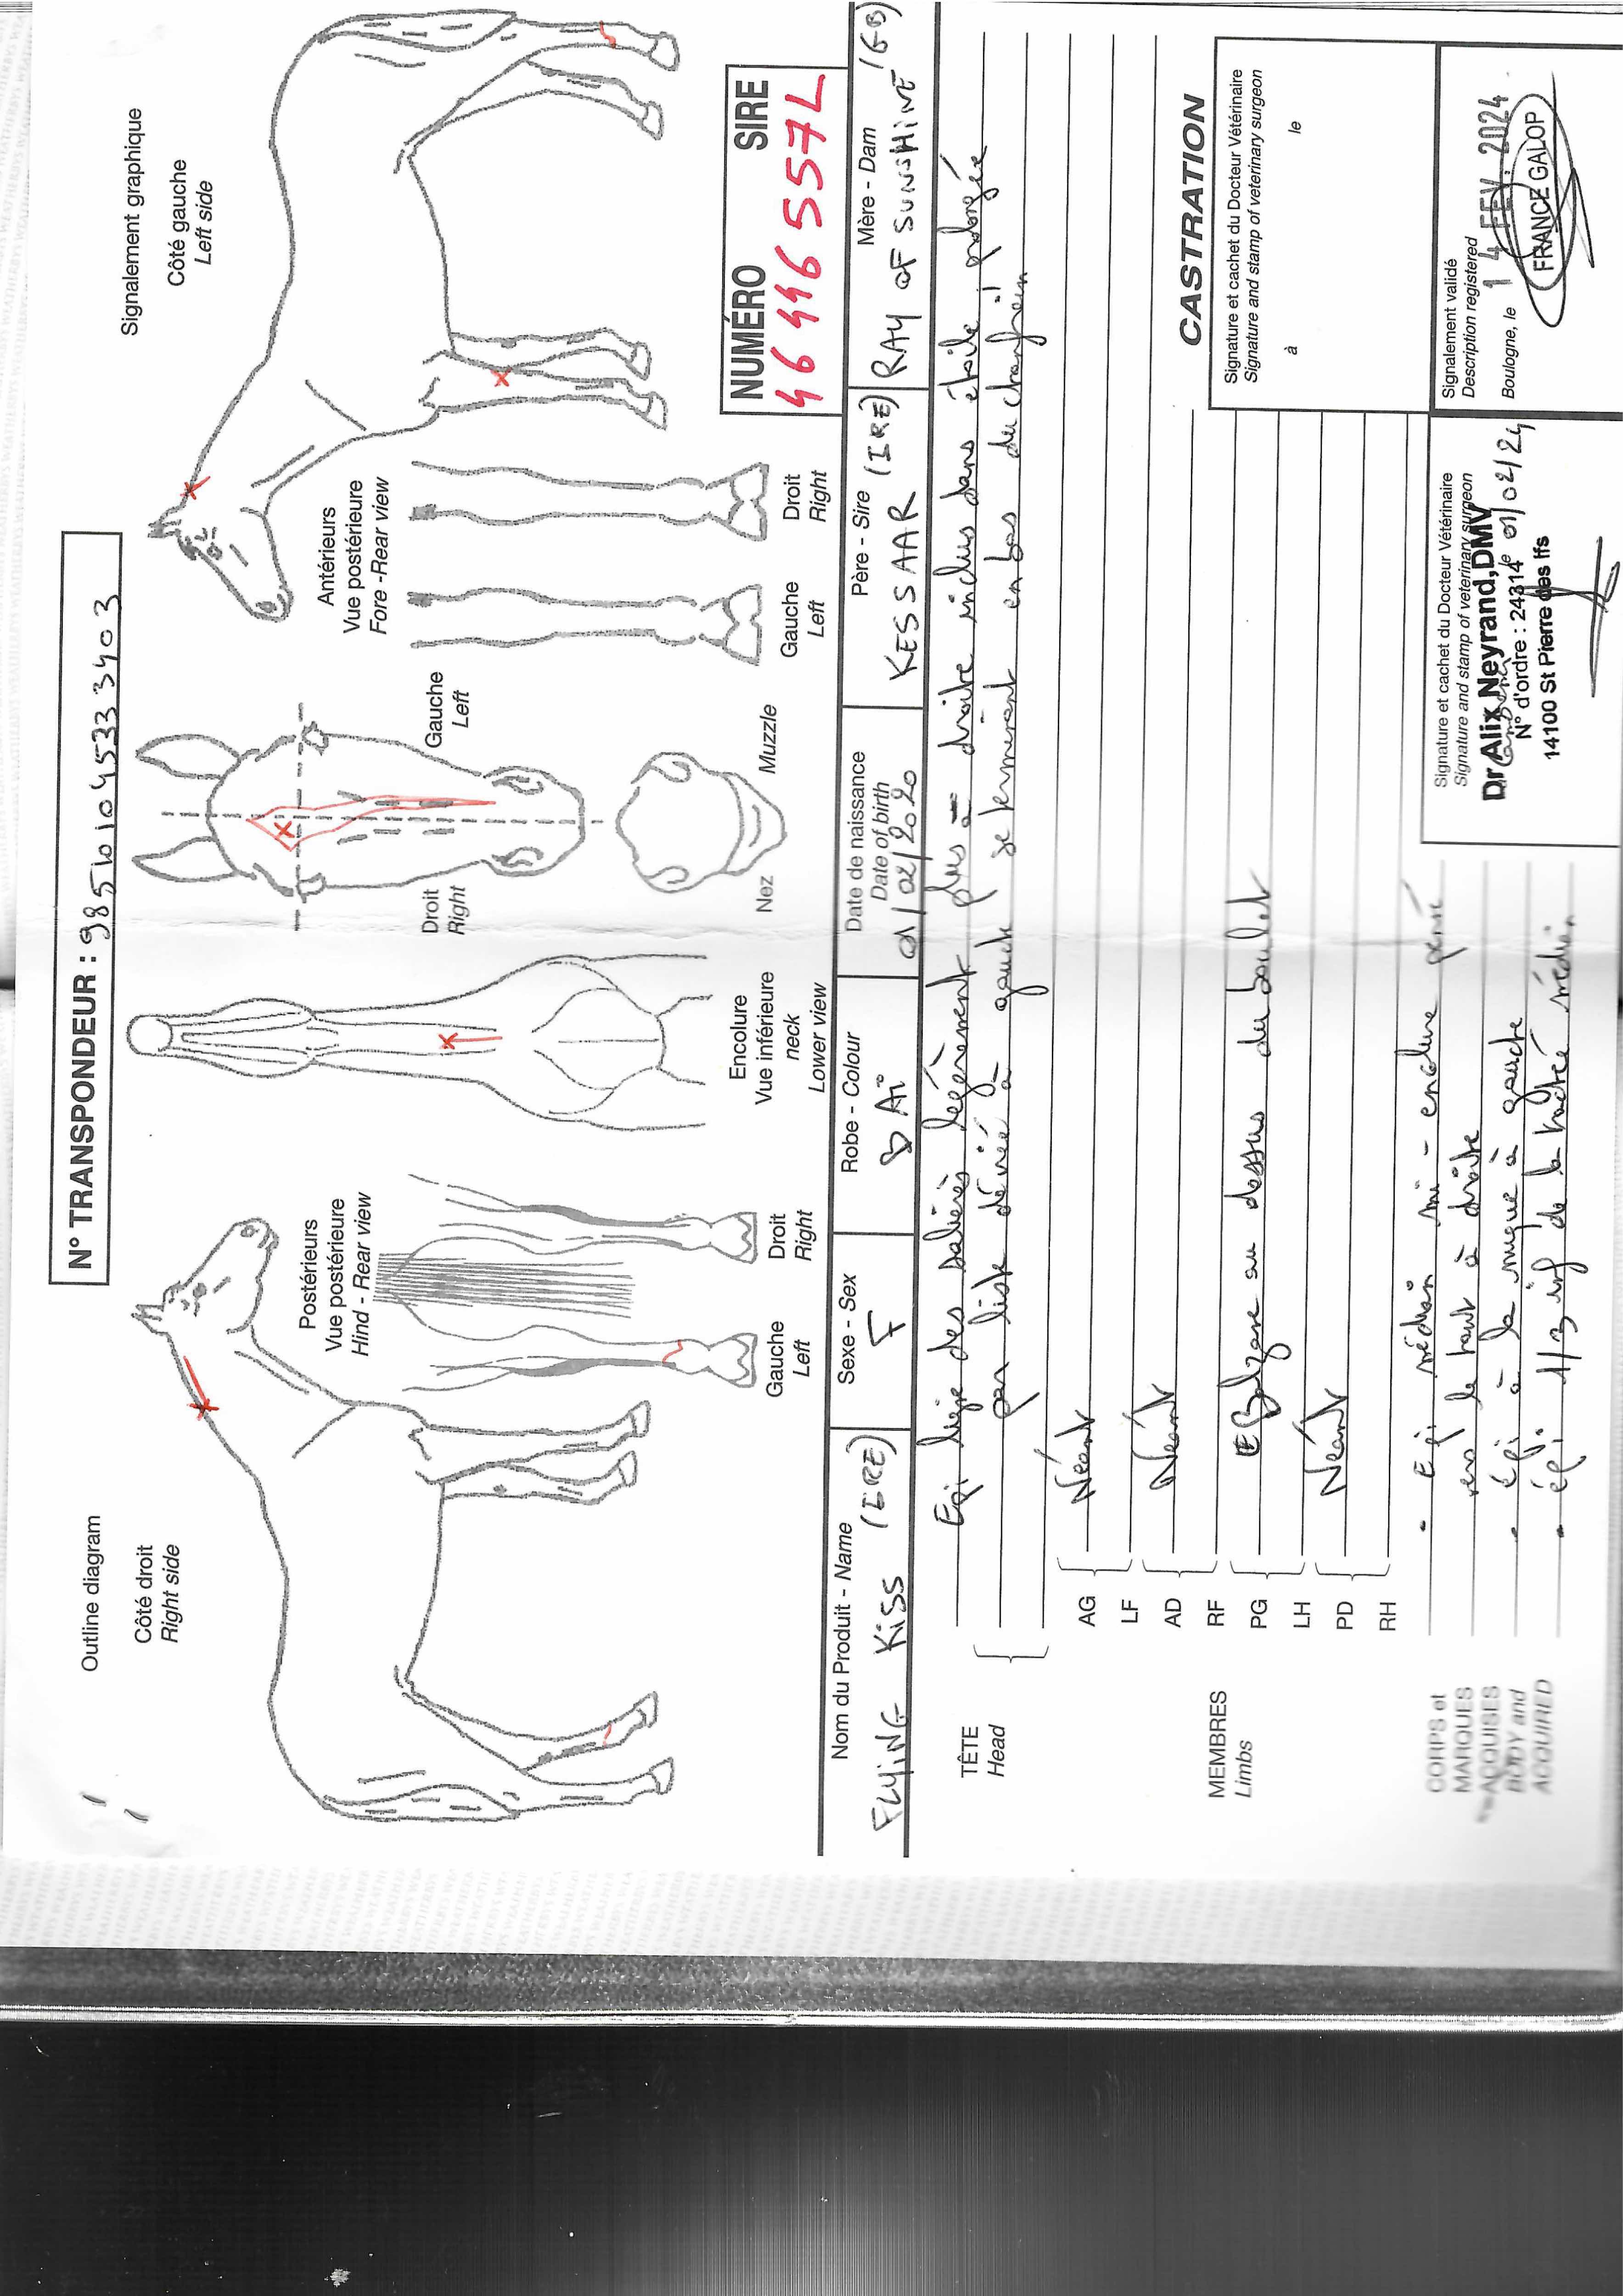 N° TRANSPONDEUR : 985101045333403
Outline diagram
Signalement graphique
Côté droit
Right side
Côté gauche
Left side
Postérieurs
Vue postérieure
Hind - Rear view
Gauche
Left
Droit
Right
Encolure
Vue inférieure
neck
Lower view
Droit
Right
Gauche
Left
Nez
Muzzle
Antérieurs
Vue postérieure
Fore -Rear view
Gauche
Left
Droit
Right
NUMÉRO SIRE
46446557L
Nom du Produit - Name
FLYING KISS (IRE)
Sexe - Sex
F
Robe - Colour
BAI
Date de naissance
Date of birth
01/02/2020
Père - Sire
KESSAAR (IRE)
Mère - Dam
RAY OF SUNSHINE (GB)
TÊTE
Head
Epi ligne des salières légèrement plus à droite inclus dans étoile prolongée
par liste déviée à gauche se terminant en bas du chanfrein
MEMBRES
Limbs
AG
LF
Néant
AD
RF
Néant
PG
LH
Balzane au dessus du boulet
PD
RH
Néant
CORPS et
MARQUES
ACQUISES
BODY and
ACQUIRED
- Epi médian mi-encolure penné
vers le haut à droite
- épi à la nuque à gauche
- épi 1/3 inf de la trachée médian
CASTRATION
Signature et cachet du Docteur Vétérinaire
Signature and stamp of veterinary surgeon
à le
Signature et cachet du Docteur Vétérinaire
Signature and stamp of veterinary surgeon
Dr Alix Neyrand, DMV
N° d'ordre : 24314 le 01/02/24
14100 St Pierre des Ifs
Signalement validé
Description registered
Boulogne, le 14 FEV. 2024
FRANCE GALOP